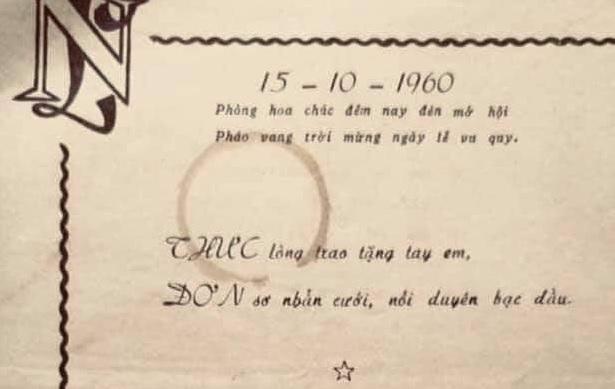 N
15 – 10 – 1960
Phòng hoa chúc đêm nay đèn mở hội
Pháo vang trời mừng ngày lễ vu quy.
THỰC lòng trao tặng tay em,
ĐƠN sơ nhẫn cưới, nối duyên bạc đầu.